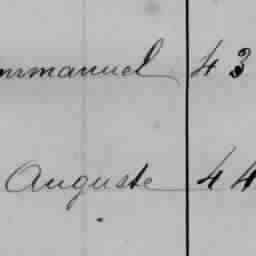 mmanuel 43
Auguste 44